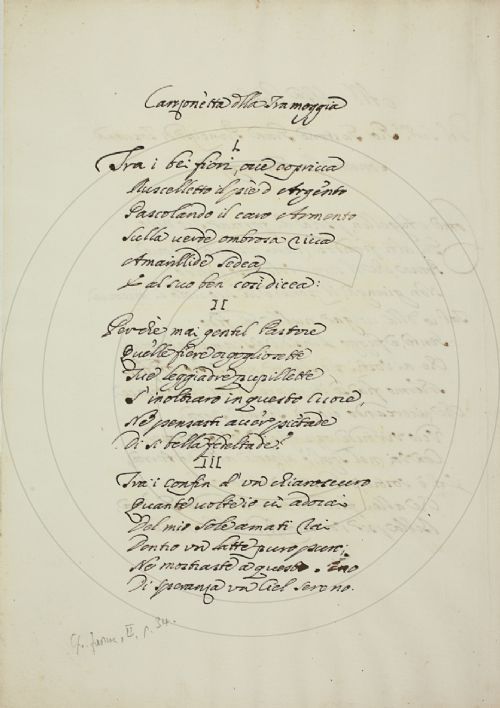 Canzonetta della Tramoggia
I.
Tra i bei fiori, ove copriva
Ruscelletto il piè d'Argento
Pascolando il caro Armento
Sulla verde ombrosa riva
Amarillide sedea
E al suo ben così dicea:
II
Perchè mai gentil Pastore
Quelle fiere orgogliosette
Tue leggiadre pupillette
S'inoltraro in questo Cuore,
Nè pensasti aver pietade
Di sì bella fedeltade?
III
Tra i confin d'un chiaroscuro
Quante volte io vi adorai
Del mio Sole amati rai
Dentro un latte puro puro;
Nè mostraste a questo
Di Speranza un Ciel Sereno.
Cf. II, p. 34.